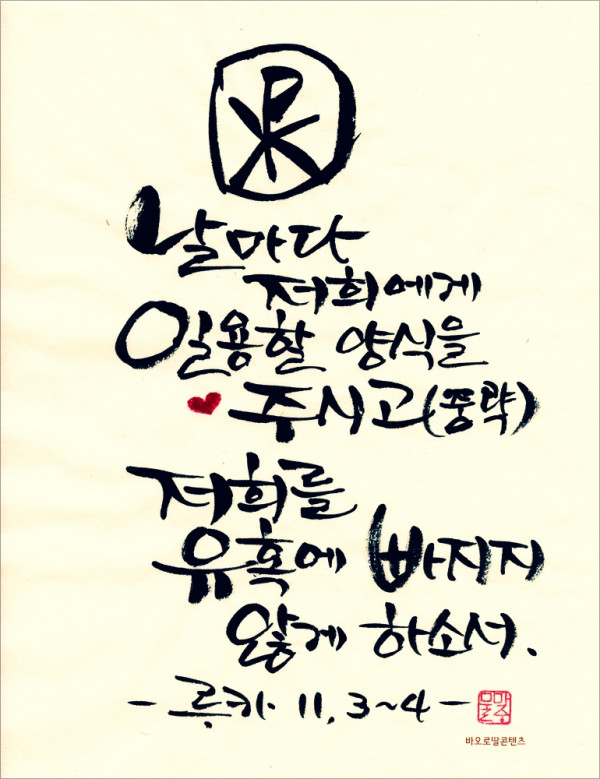 날마다
저희에게
일용할 양식을
주시고(중략)
저희를
유혹에 빠지지
않게 하소서.
- 루카 11, 3~4 -
바오로딸콘텐츠